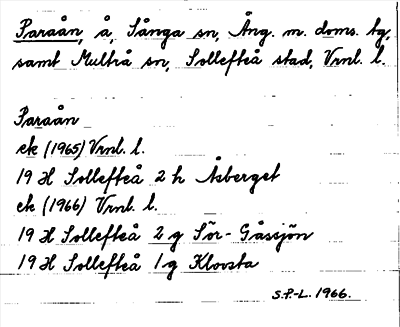 Paraån, å, Sånga sn, Ång. m. doms. tg,
samt Multrå sn, Sollefteå stad, Vrnl. l.
Paraån
ek (1965) Vrnl. l.
19 H Sollefteå 2 h Åsberget
ek (1966) Vrnl. l.
19 H Sollefteå 2 g Sör-Gåssjön
19 H Sollefteå 1 g Klovsta
S.P.-L. 1966.